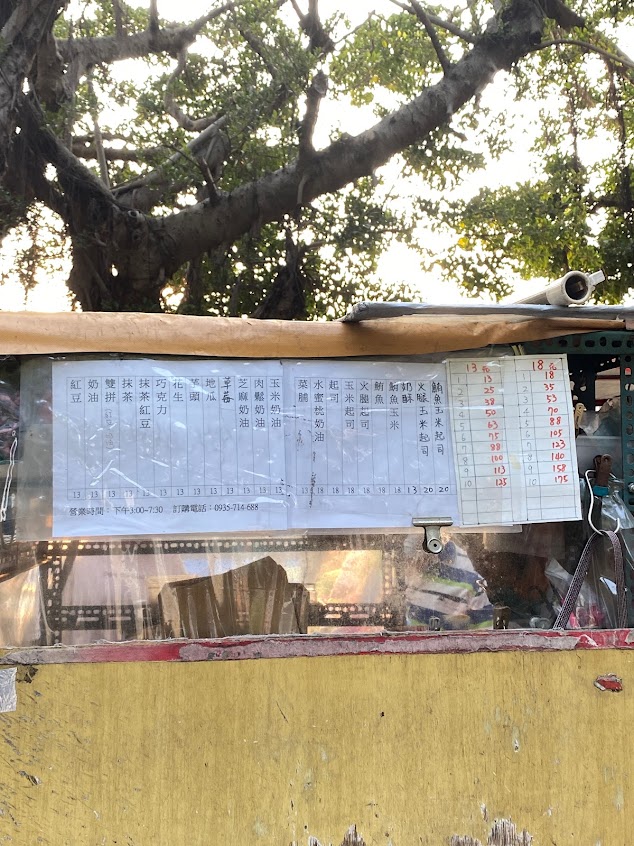 紅豆 13
奶油 13
雙拼 13
抹茶 13
抹茶紅豆 13
巧克力 13
花生 13
芋頭 13
地瓜 13
草莓 13
芝麻奶油 13
肉鬆奶油 13
玉米奶油 13
營業時間：下午3:00~7:30 訂購電話：0935-714-688
菜脯 13
水蜜桃奶油 18
起司 18
玉米起司 18
火腿起司 18
鮪魚 18
鮪魚玉米 18
奶酥 13
火腿玉米起司 20
鮪魚玉米起司 20
13元 18元
1 13 1 18
2 25 2 35
3 38 3 53
4 50 4 70
5 63 5 88
6 75 6 105
7 88 7 123
8 100 8 140
9 113 9 158
10 125 10 175